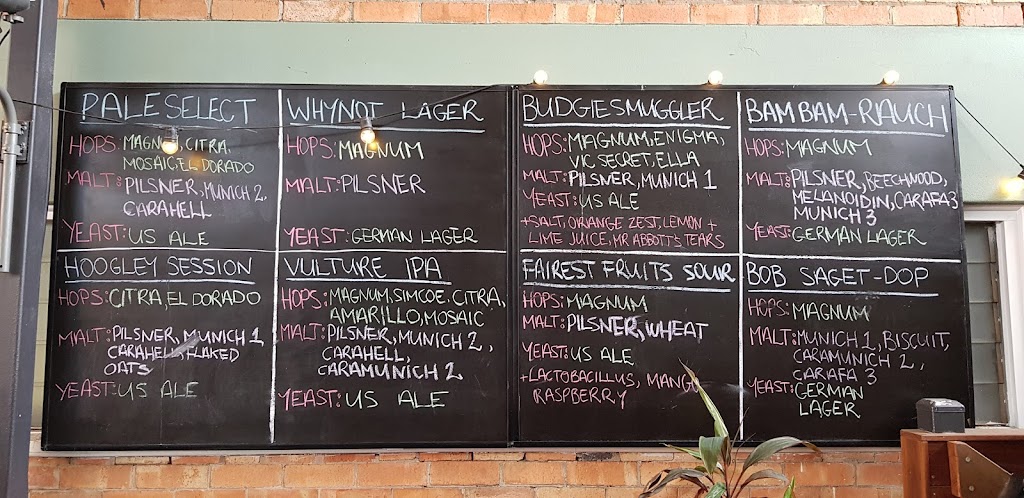 PALE SELECT
HOPS: MAGNUM, CITRA,
MOSAIC, EL DORADO
MALT: PILSNER, MUNICH 2,
CARAHELL
YEAST: US ALE
WHYNOT LAGER
HOPS: MAGNUM
MALT: PILSNER
YEAST: GERMAN LAGER
BUDGIESMUGGLER
HOPS: MAGNUM, ENIGMA,
VIC SECRET, ELLA
MALT: PILSNER, MUNICH 1
YEAST: US ALE
+SALT, ORANGE ZEST, LEMON +
LIME JUICE, MR ABBOTT'S TEARS
BAM BAM-RAUCH
HOPS: MAGNUM
MALT: PILSNER, BEECHWOOD,
MELANOIDIN, CARAFA 3
MUNICH 3
YEAST: GERMAN LAGER
HOOGLEY SESSION
HOPS: CITRA, EL DORADO
MALT: PILSNER, MUNICH 1
CARAHELL, FLAKED
OATS
YEAST: US ALE
VULTURE IPA
HOPS: MAGNUM, SIMCOE, CITRA,
AMARILLO, MOSAIC
MALT: PILSNER, MUNICH 2,
CARAHELL,
CARAMUNICH 2
YEAST: US ALE
FAIREST FRUITS SOUR
HOPS: MAGNUM
MALT: PILSNER, WHEAT
YEAST: US ALE
+LACTOBACILLUS, MANGO
RASPBERRY
BOB SAGET-DOP
HOPS: MAGNUM
MALT: MUNICH 1, BISCUIT,
CARAMUNICH 2,
CARAFA 3
YEAST: GERMAN
LAGER